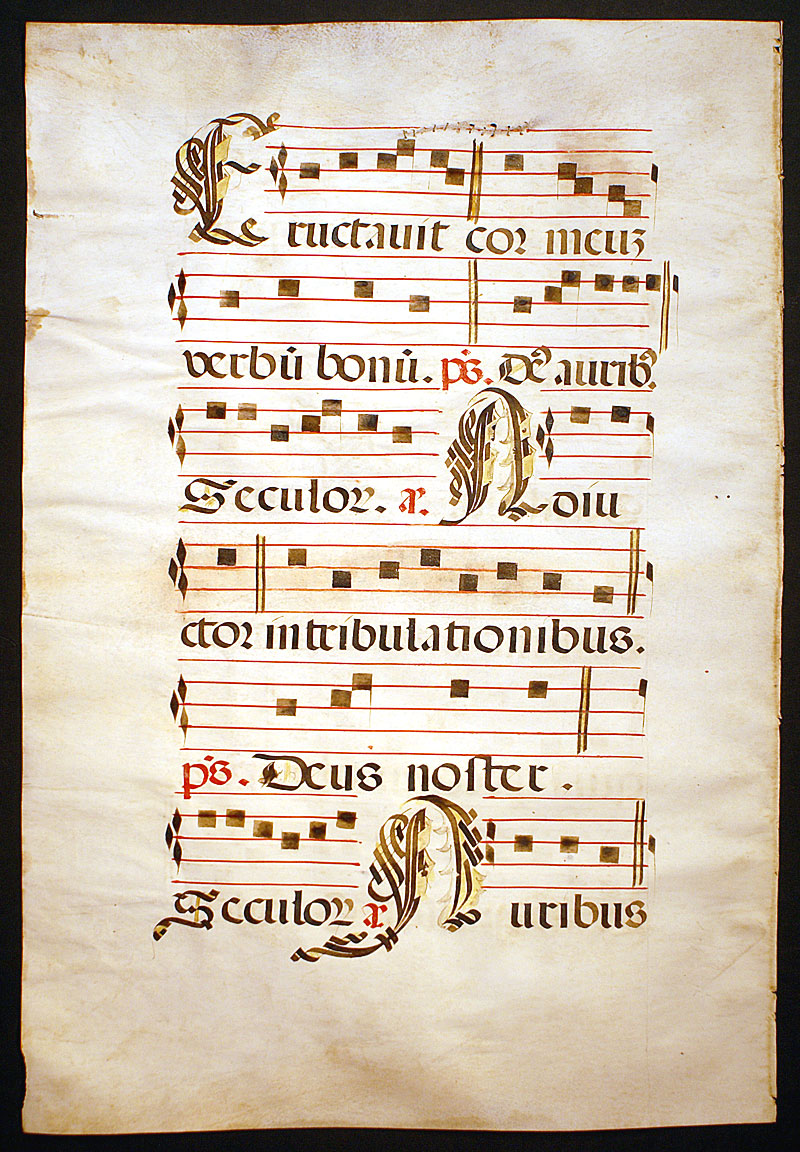 Eructauit cor meuz
verbū bonū. ps. Deꝰ auribꝰ.
Seculor. a. Adiu
ctor in tribulationibus.
ps. Deus noster.
Seculor a Auribus